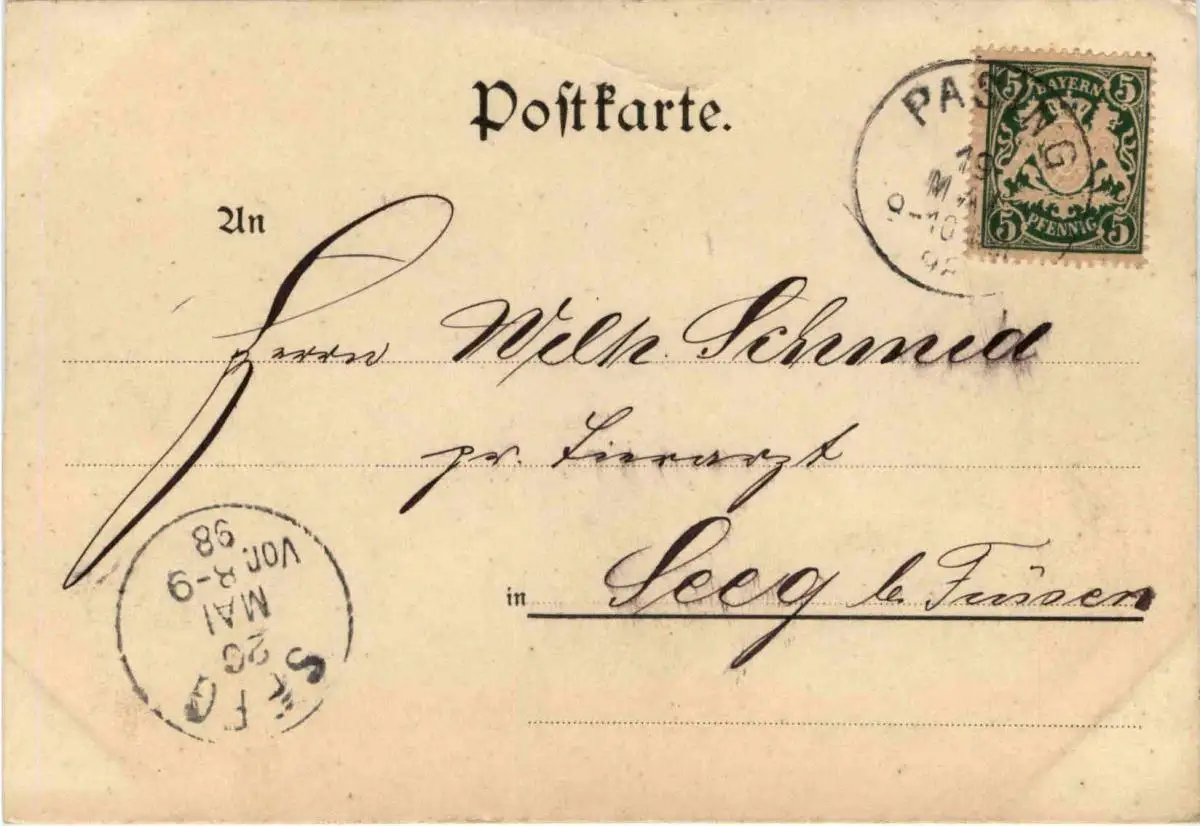 Postkarte.
PASING
19
MAI
9-10
98
5 BAYERN 5
5 PFENNIG 5
An
Herrn Wilh. Schmid
pr. Tierarzt
in Seeg b. Füssen
SEEG
20
MAI
VOR. 8-9
98